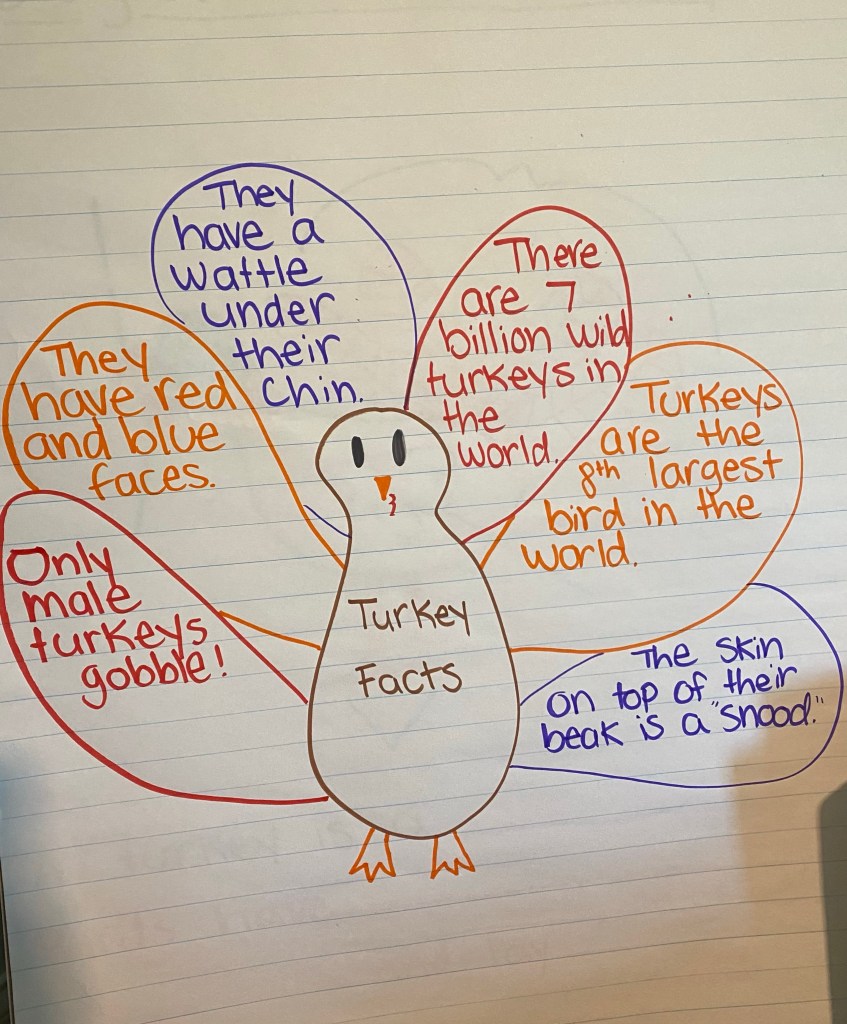 They
have a
wattle
under
their
chin.
There
are 7
billion wild
turkeys in
the
world.
They
have red
and blue
faces.
Turkeys
are the
8th largest
bird in the
world.
Only
male
turkeys
gobble!
Turkey
Facts
The skin
on top of their
beak is a "snood."